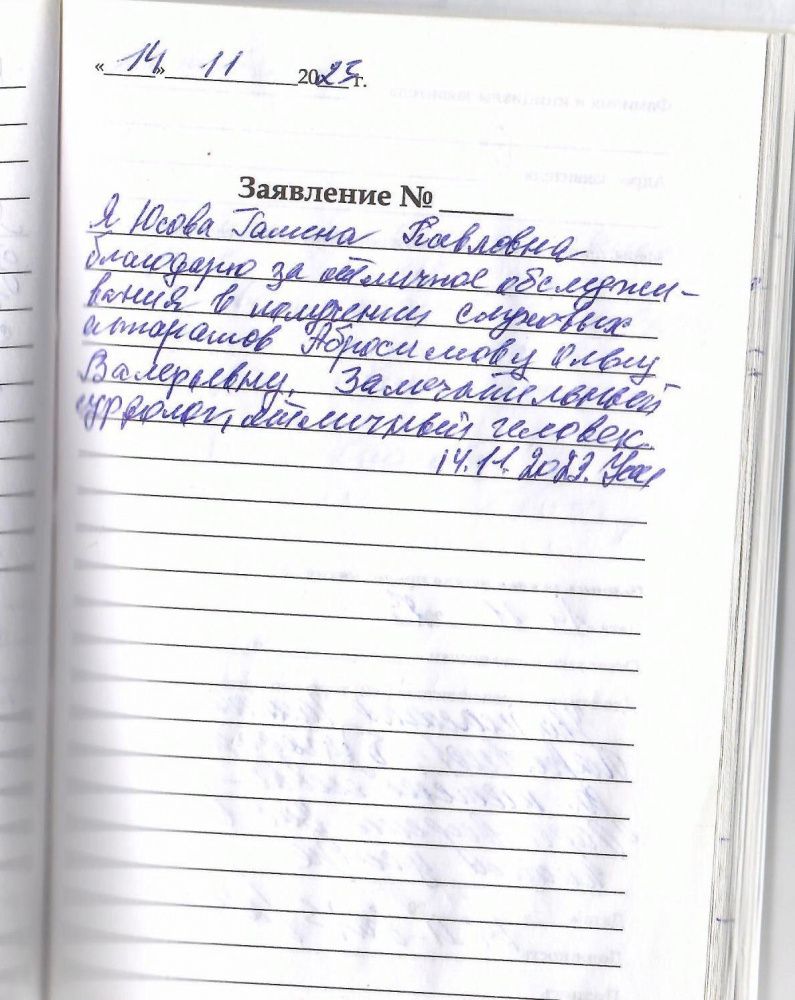 «14» 11 2023 г.
Заявление №
Я Юсова Галина Павловна
благодарю за отличное обследжи-
вания в получении слуховых
аппаратов Абросимову Ольгу
Валерьевну. Замечательный
сурдолог, отличный человек.
14.11.2023.